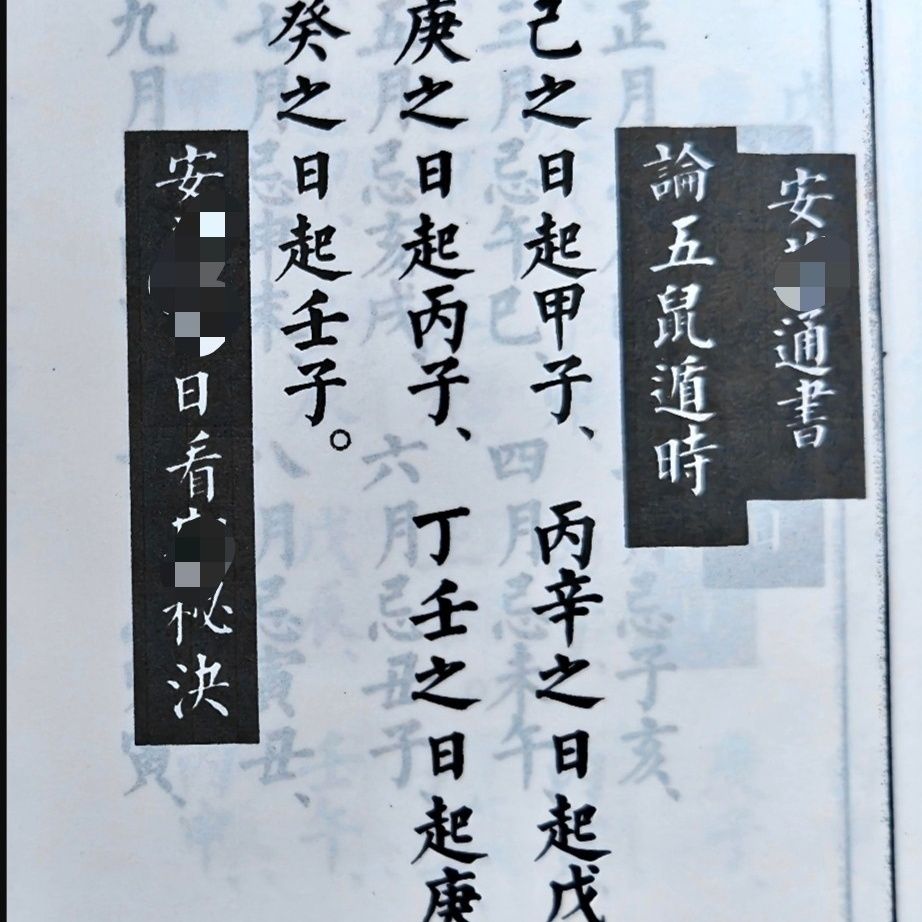 安通書
論五鼠遁時
己之日起甲子、 丙辛之日起戊
庚之日起丙子、 丁壬之日起庚
癸之日起壬子。
安日看秘決